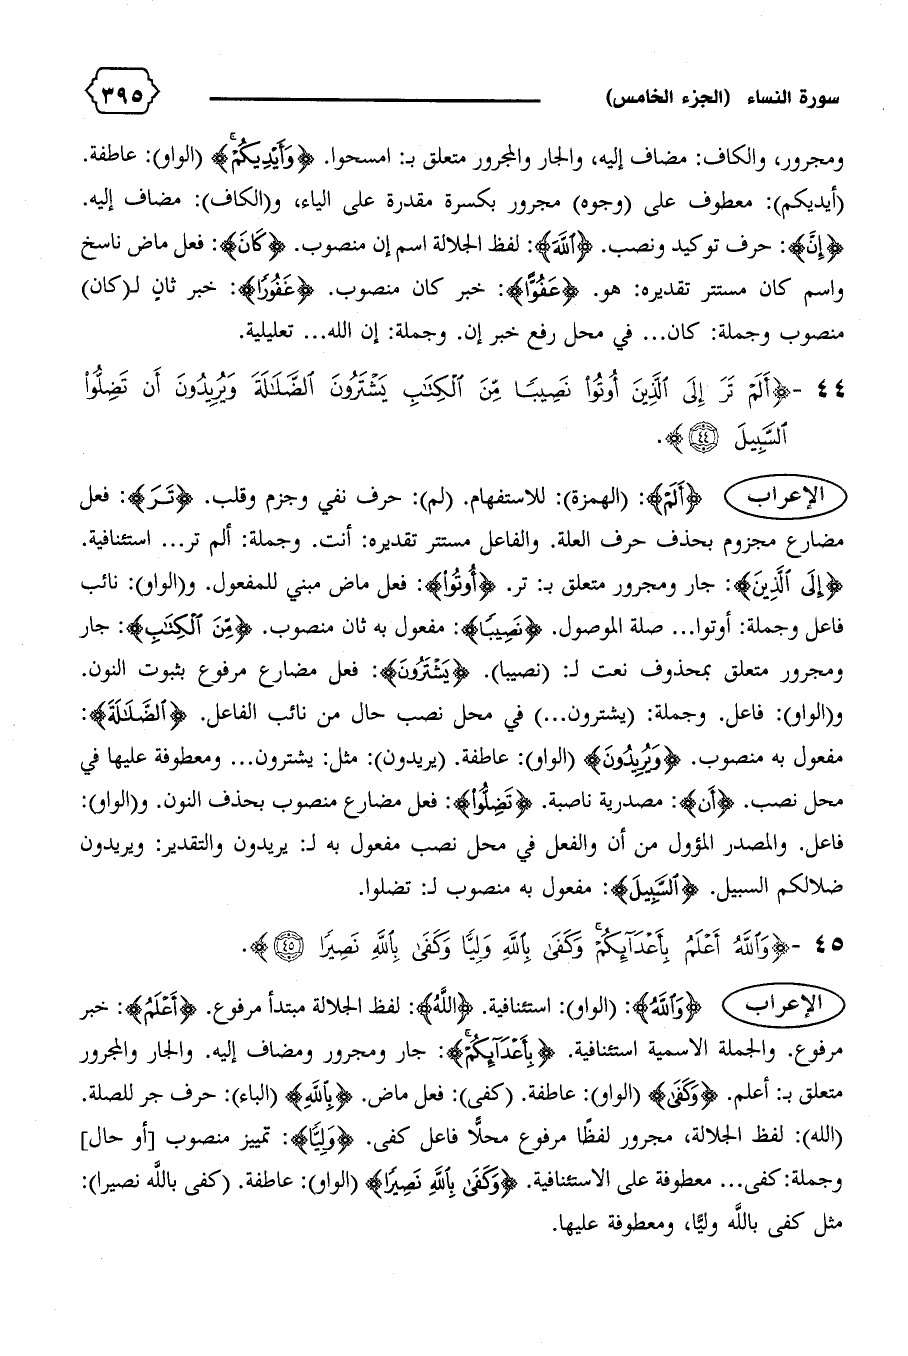 سورة النساء (الجزء الخامس) ٣٩٥
ومجرور، والكاف: مضاف إليه، والجار والمجرور متعلق بـ: امسحوا. ﴿وَأَيْدِيكُمْ﴾ (الواو): عاطفة.
(أيديكم): معطوف على (وجوه) مجرور بكسرة مقدرة على الياء، و(الكاف): مضاف إليه.
﴿إِنَّ﴾: حرف توكيد ونصب. ﴿ٱللَّهَ﴾: لفظ الجلالة اسم إن منصوب. ﴿كَانَ﴾: فعل ماض ناسخ
واسم كان مستتر تقديره: هو. ﴿عَفُوًّا﴾: خبر كان منصوب. ﴿غَفُورًا﴾: خبر ثانٍ لـ(كان)
منصوب وجملة: كان... في محل رفع خبر إن. وجملة: إن الله... تعليلية.
٤٤ -﴿أَلَمْ تَرَ إِلَى ٱلَّذِينَ أُوتُوا۟ نَصِيبًا مِّنَ ٱلْكِتَٰبِ يَشْتَرُونَ ٱلضَّلَٰلَةَ وَيُرِيدُونَ أَن تَضِلُّوا۟
ٱلسَّبِيلَ ٤٤﴾.
الإعراب ﴿أَلَمْ﴾: (الهمزة): للاستفهام. (لم): حرف نفي وجزم وقلب. ﴿تَرَ﴾: فعل
مضارع مجزوم بحذف حرف العلة. والفاعل مستتر تقديره: أنت. وجملة: ألم تر... استئنافية.
﴿إِلَى ٱلَّذِينَ﴾: جار ومجرور متعلق بـ: تر. ﴿أُوتُوا۟﴾: فعل ماض مبني للمفعول. و(الواو): نائب
فاعل وجملة: أوتوا... صلة الموصول. ﴿نَصِيبًا﴾: مفعول به ثان منصوب. ﴿مِّنَ ٱلْكِتَٰبِ﴾: جار
ومجرور متعلق بمحذوف نعت لـ: (نصيبا). ﴿يَشْتَرُونَ﴾: فعل مضارع مرفوع بثبوت النون.
و(الواو): فاعل. وجملة: (يشترون...) في محل نصب حال من نائب الفاعل. ﴿ٱلضَّلَٰلَةَ﴾:
مفعول به منصوب. ﴿وَيُرِيدُونَ﴾ (الواو): عاطفة. (يريدون): مثل: يشترون... ومعطوفة عليها في
محل نصب. ﴿أَن﴾: مصدرية ناصبة. ﴿تَضِلُّوا۟﴾: فعل مضارع منصوب بحذف النون. و(الواو):
فاعل. والمصدر المؤول من أن والفعل في محل نصب مفعول به لـ: يريدون والتقدير: ويريدون
ضلالكم السبيل. ﴿ٱلسَّبِيلَ﴾: مفعول به منصوب لـ: تضلوا.
٤٥ -﴿وَٱللَّهُ أَعْلَمُ بِأَعْدَآئِكُمْ وَكَفَىٰ بِٱللَّهِ وَلِيًّا وَكَفَىٰ بِٱللَّهِ نَصِيرًا ٤٥﴾.
الإعراب ﴿وَٱللَّهُ﴾: (الواو): استئنافية. ﴿اللَّهُ﴾: لفظ الجلالة مبتدأ مرفوع. ﴿أَعْلَمُ﴾: خبر
مرفوع. والجملة الاسمية استئنافية. ﴿بِأَعْدَآئِكُمْ﴾: جار ومجرور ومضاف إليه. والجار والمجرور
متعلق بـ: أعلم. ﴿وَكَفَىٰ﴾ (الواو): عاطفة. (كفى): فعل ماض. ﴿بِٱللَّهِ﴾ (الباء): حرف جر للصلة.
(الله): لفظ الجلالة، مجرور لفظًا مرفوع محلًّا فاعل كفى. ﴿وَلِيًّا﴾: تمييز منصوب [أو حال]
وجملة: كفى... معطوفة على الاستئنافية. ﴿وَكَفَىٰ بِٱللَّهِ نَصِيرًا﴾ (الواو): عاطفة. (كفى باللَّه نصيرا):
مثل كفى باللَّه وليًّا، ومعطوفة عليها.